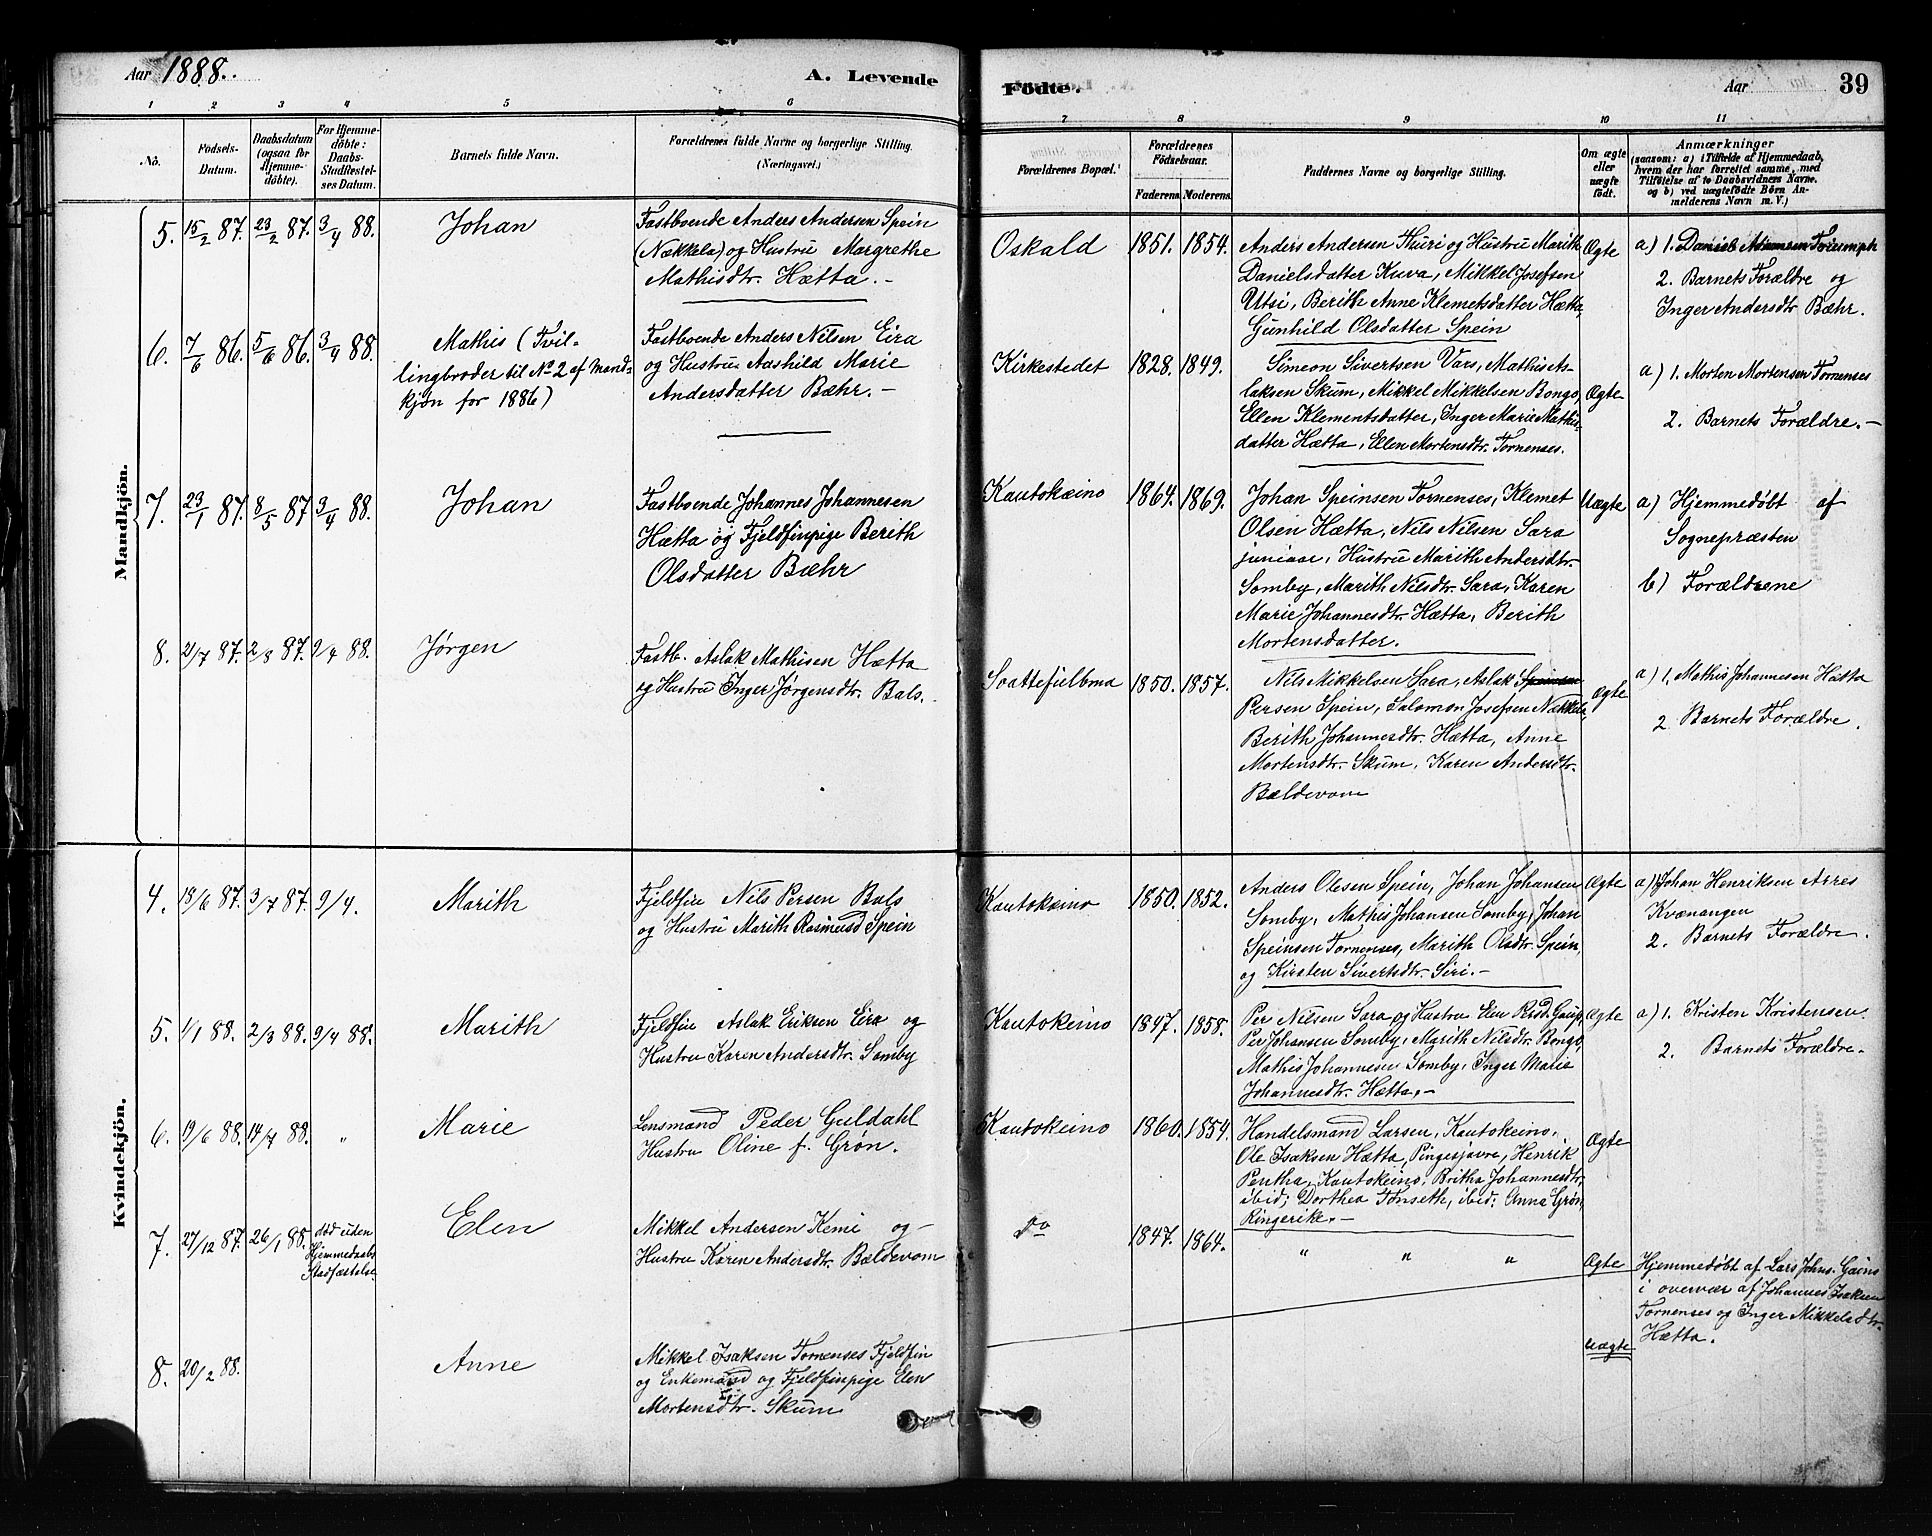 Aar 1888. A. Levende
1 2 3 4 5 6
No. Födsels-Datum. Daabsdatum (ogsaa for Hjemmedöbte). For Hjemmedöbte: Daabs-Stadfæstelses Datum. Barnets fulde Navn. Forældrenes fulde Navne og borgerlige Stilling. (Næringsvei.)
Mandkjön.
5. 15/2 87. 23/2 87. 3/4 88. Johan
Fastboende Anders Andersen Spein
(Nækkela) og Hustru Margrethe
Mathisdtr. Hætta.-
6. 7/6 86. 5/6 86. 3/4 88. Mathis (Tvil-
lingbroder til No 2 af Mand-
kjøn for 1886)
Fastboende Anders Nilsen Eira
og Hustru Aashild Marie
Andersdatter Bæhr.-
7. 23/1 87. 8/5 87 3/4 88. Johan
Fastboende Johannes Johannesen
Hætta og Fjeldfinpige Berith
Olsdatter Bæhr
8. 21/7 87. 2/8 87. 9/4 88. Jørgen
Fastb. Aslak Mathisen Hætta
og Hustru Inger Jørgensdtr. Bals.
Kvindekjön.
4. 18/6 87. 3/7 87. 9/4. Marith
Fjeldfin Nils Persen Bals
og Hustru Marith Rasmusd Spein
5. 1/1 88. 2/3 88. 9/4 88. Marith
Fjeldfin Aslak Eriksen Eira og
Hustru Karen Andersdtr. Somby
6. 19/6 88. 14/7 88. " Marie
Lensmand Peder Guldahl
Hustru Oline f. Grøn.
7. 27/12 87. 26/1 88. død uden
Hjemmedaabs
Stadfæstelse
Elen
Mikkel Andersen Kemi og -
Hustru Karen Andersdtr. Bældevom
8. 20/2 88. Anne
Mikkel Isaksen Tornenses Fjeldfin
og Enkemand og Fjeldfinpige Elen
Mortensdtr. Skum
Födte. Aar 39
7 8 9 10 11
Forældrenes Bopæl. Forældrenes Födselsaar. Faderens. Moderens. Faddernes Navne og borgerlige Stilling. Om ægte eller uægte födt.
Anmærkninger
(saasom: a) i Tilfælde af Hjemmedaab,
hvem der har forrettet samme, med
Tilföielse af to Daabsvidners Navne,
og b) ved uægtefödte Börn An-
melderens Navn m. V.)
Oskald 1851. 1854.
Anders Andersen Thuri og Hustru Marith
Danielsdatter Kuva, Mikkel Josefsen
Utsi, Berith Anne Klemetsdatter Hætta,
Gunhild Olsdatter Spein
Ægte
a) 1. Daniel Triumph
2. Barnets Forældre og
Inger Andersdtr Bæhr.
Kirkestedet 1828. 1849.
Simeon Sivertsen Vars, Mathis As-
laksen Skum, Mikkel Mikkelsen Bongo,
Ellen Klementsdatter, Inger Marie Mathis-
datter Hætta, Ellen Mortensdtr. Tornenses.
Ægte
a) 1. Morten Mortensen Tornenses
2. Barnets Forældre.-
Kautokæino 1864. 1869.
Johan Speinsen Tornenses, Klemet
Olsen Hætta, Nils Nilsen Sara
junior, Hustru Marith Andersdtr.
Somby, Marith Nilsdtr. Sara, Karen
Marie Johannesdtr. Hætta, Berith
Mortensdatter.
Uægte
a) Hjemmedøbt af
Sognepræsten
b) Forældrene
Soattefielbma 1850. 1857.
Nils Mikkelsen Sara, Aslak Speinsen
Persen Spein, Salomon Josefsen Nækkela,
Berith Johannesdtr. Hætta, Anne
Mortensdtr. Skum, Karen Andersdtr.
Bældevom
Ægte
a) 1. Mathis Johannesen Hætta
2 Barnets Forældre.
Kautokæino 1850. 1852.
Anders Olesen Spein, Johan Johansen
Somby, Mathis Johansen Somby, Johan
Speinsen Tornenses, Marith Olsdtr. Spein,
og Kirsten Sivertsdtr. Siri.-
Ægte
a) 1 Johan Henriksen Arres
Kvænangen
2. Barnets Forældre.
Kautokeino 1847. 1858.
Per Nilsen Sara og Hustru Elen Rasd. Gaup,
Per Johansen Somby, Marith Nilsdtr. Bongo,
Mathis Johannesen Somby, Inger Marie
Johannesdtr. Hætta,-
Ægte
a) 1. Kristen Kristensen.
2. Barnets Forældre.
Kautokeino 1860. 1854.
Handelsmand Larsen, Kautokeino,
Ole Isaksen Hætta, Pingesjavre, Henrik
Pentha, Kautokeino; Britha Johannesdtr.
ibid; Dorthea Tønseth, ibid; Anna Grøn,
Ringerike.-
Ægte
Do 1847. 1864. " " "
Ægte
Hjemmedøbt af Lars Johns. Gaino
i overvær af Johannes Isaksen
Tornenses og Inger Mikkelsdtr.
Hætta.
uægte